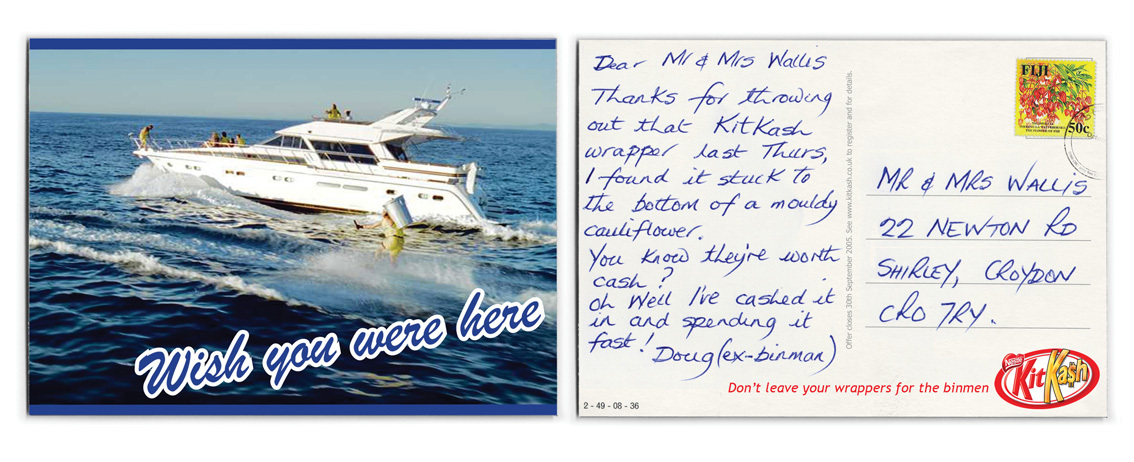 Wish you were here
Dear Mr & Mrs Wallis
Thanks for throwing
out that KitKash
wrapper last Thurs,
I found it stuck to
the bottom of a mouldy
cauliflower.
You know they're worth
cash?
Oh Well I've cashed it
in and spending it
fast!
Doug (ex-binman)
Offer closes 30th September 2005. See www.kitkash.co.uk to register and for details.
FIJI
50c
MR & MRS WALLIS
22 NEWTON RD
SHIRLEY, CROYDON
CRO 7RY.
Don't leave your wrappers for the binmen
Nestlé
KitKa$h
2 - 49 - 08 - 36